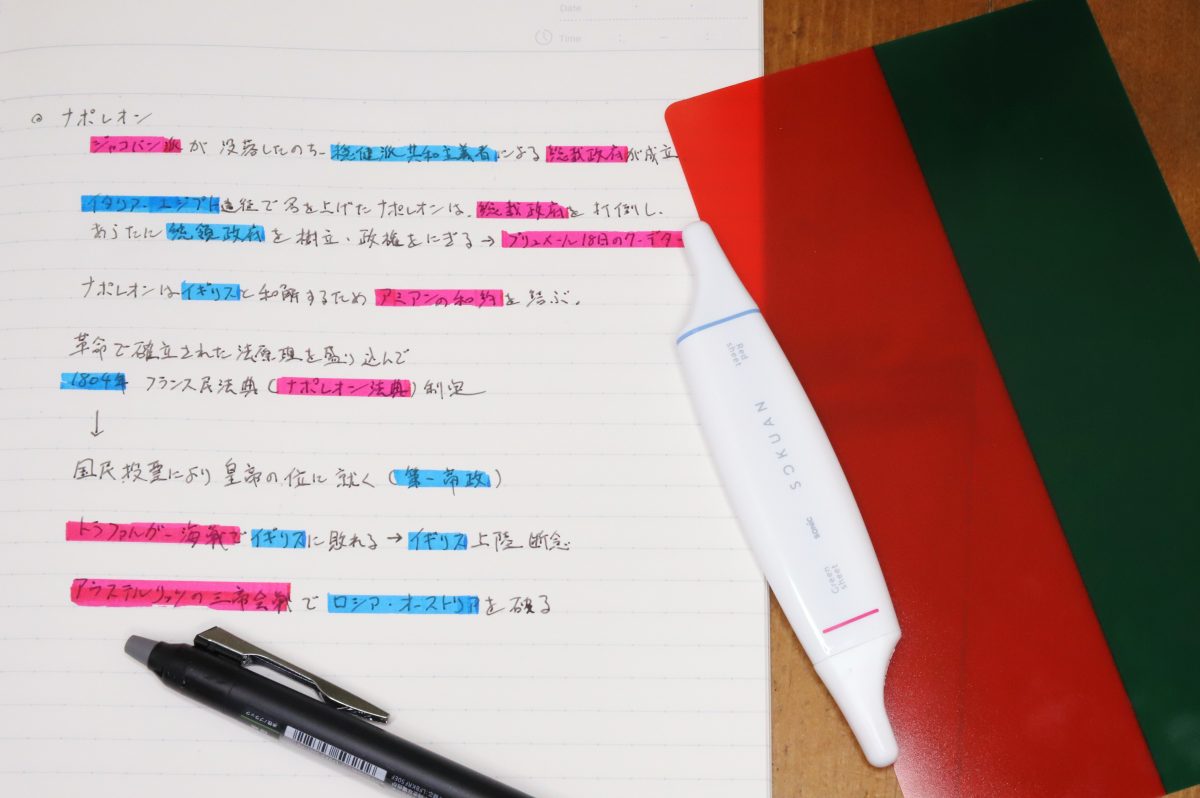 Date
Time : – :
◎ ナポレオン
ジャコバン派が没落したのち、穏健派共和主義者による総裁政府が成立
イタリア・エジプト遠征で名を上げたナポレオンは、総裁政府を打倒し、
あらたに統領政府を樹立・政権をにぎる→ブリュメール18日のクーデター
ナポレオンはイギリスと和解するためアミアンの和約を結ぶ。
革命で確立された法原理を盛り込んで
1804年 フランス民法典(ナポレオン法典)制定
↓
国民投票により皇帝の位に就く(第一帝政)
トラファルガー海戦でイギリスに敗れる→イギリス上陸断念
アウステルリッツの三帝会戦でロシア・オーストリアを破る
Red
sheet
SOKUAN
sonic
Green
sheet